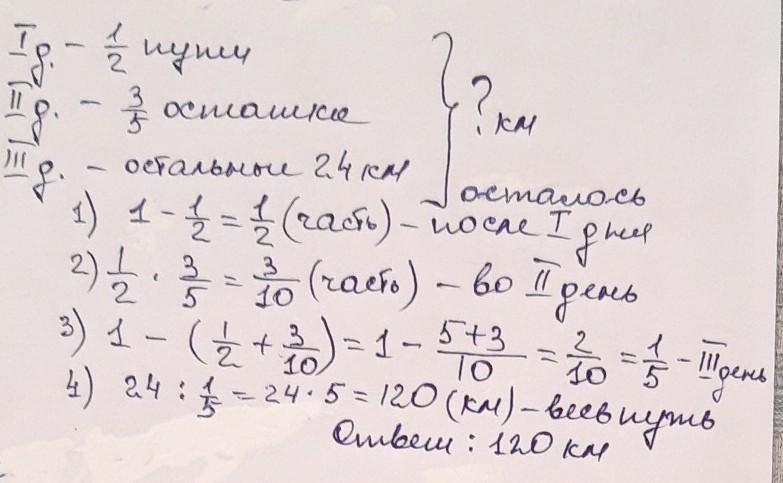 I д. – 1/2 пути
II д. – 3/5 остатка
? км
III д. – остальные 24 км
осталось
1) 1 - 1/2 = 1/2 (часть) – после I дня
2) 1/2 · 3/5 = 3/10 (часть) – во II день
3) 1 - (1/2 + 3/10) = 1 - 5+3/10 = 2/10 = 1/5 - III день
4) 24 : 1/5 = 24 · 5 = 120 (км) – весь путь
Ответ : 120 км